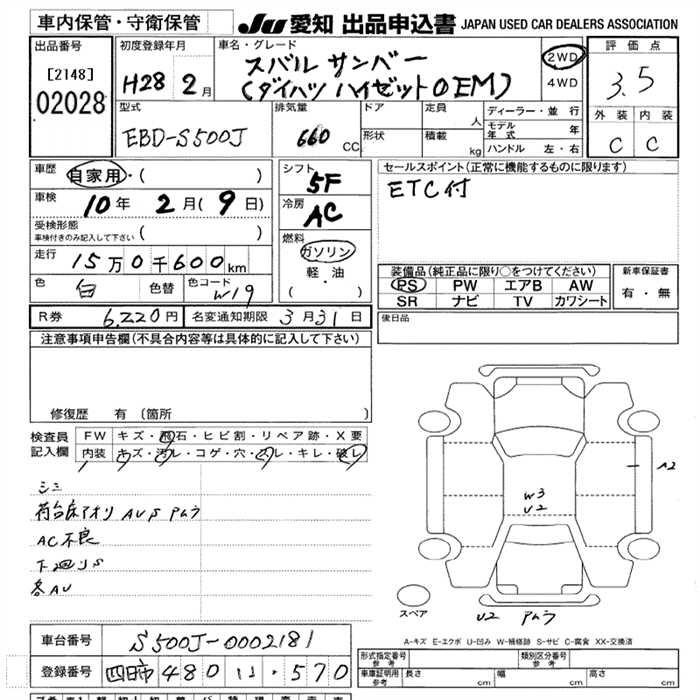 車内保管・守衛保管 JU 愛知 出品申込書 JAPAN USED CAR DEALERS ASSOCIATION
出品番号 初度登録年月 車名・グレード 評価点
[2148] H28 2月 スバル サンバー 2WD 3.5
02028 (ダイハツ ハイゼットOEM) 4WD
外装 内装
型式 排気量 ドア 定員 ディーラー・並行 C C
EBD-S500J 660 CC 人 モデル年式 年
形状 積載 kg ハンドル 左・右
車歴 自家用・( ) シフト 5F セールスポイント(正常に機能するものに限ります)
車検 10年 2月(9日) 冷房 AC ETC付
受検形態
車検付きのみ記入して下さい ( )
燃料 ガソリン
走行 15万0千600km 軽・油
( ・ )
装備品(純正品に限り○をつけてください) 新車保証書
色 白 色替 色コード W19 PS PW エアB AW 有・無
SR ナビ TV カワシート
R券 6,220円 名変通知期限 3月31日 後日品
注意事項申告欄(不具合内容等は具体的に記入して下さい)
修復歴 有 (箇所 )
検査員 FW キズ・飛石・ヒビ割・リペア跡・X要
記入欄 内装 キズ・汚レ・コゲ・穴・スレ・キレ・破レ
A2
シミ
W3
荷台床アオリ AUS Pムラ
U2
AC不良
下廻りS
各AU
スペア
U2 Pムラ
A-キズ E-エクボ U-凹み W-補修跡 S-サビ C-腐食 XX-交換済
車台番号 S500J-0002181
登録番号 四日市 480 い・570
形式指定番号 参考 類別区分番号 参考
車庫証明用 参考 長さ cm 幅 cm 高さ cm